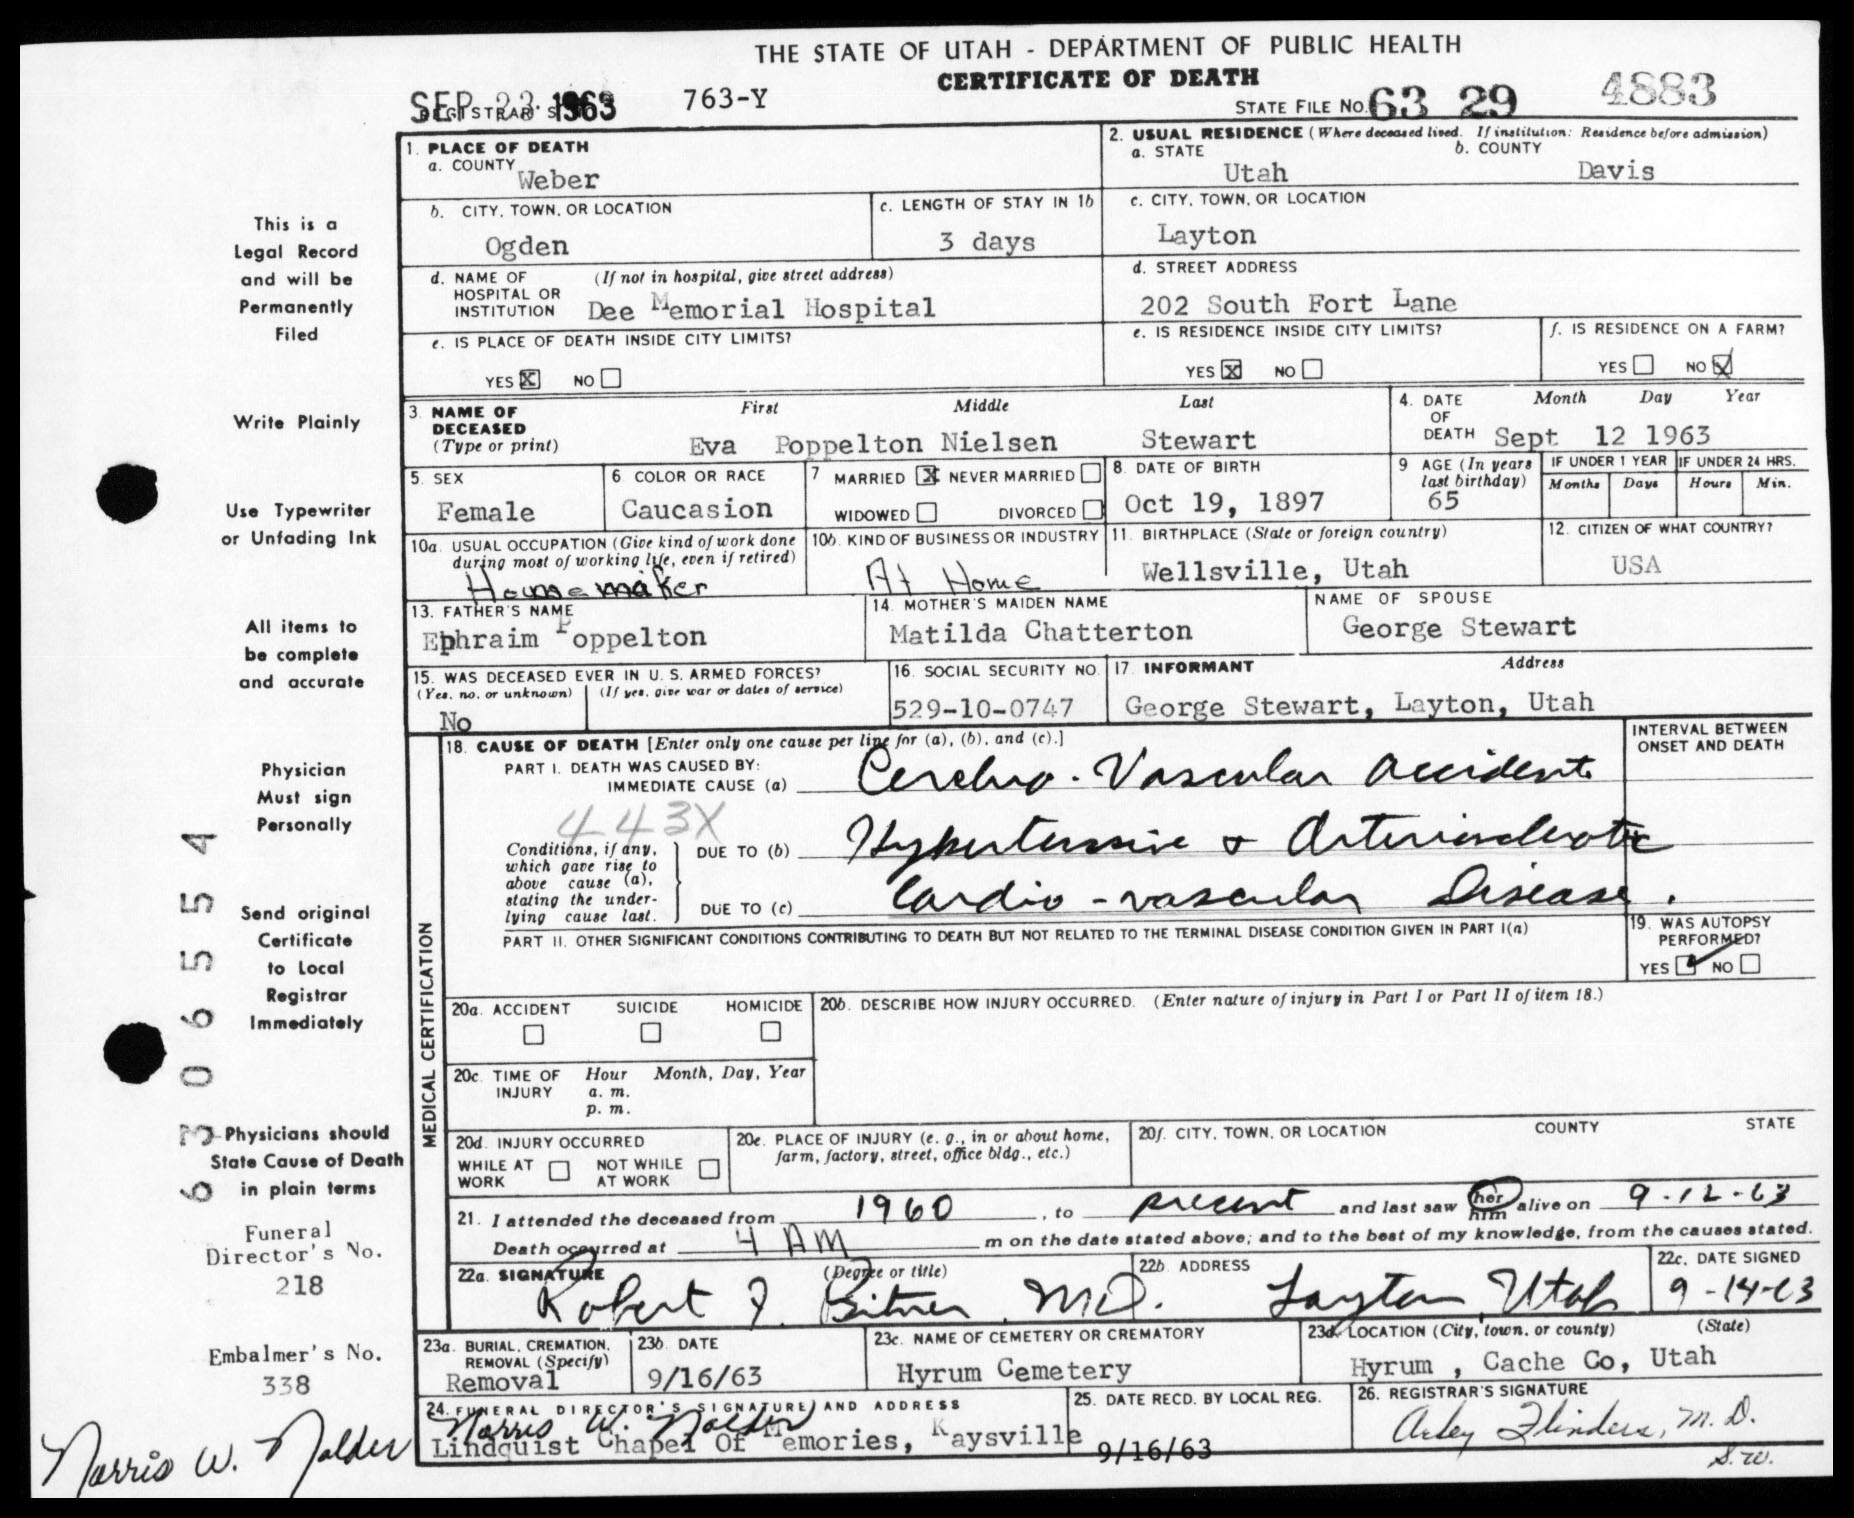 THE STATE OF UTAH - DEPARTMENT OF PUBLIC HEALTH
CERTIFICATE OF DEATH
SEP 23 1963
763-Y
STATE FILE NO. 63 29 4883
1. PLACE OF DEATH
a. COUNTY
Weber
2. USUAL RESIDENCE (Where deceased lived. If institution: Residence before admission)
a. STATE
b. COUNTY
Utah
Davis
b. CITY, TOWN, OR LOCATION
Ogden
c. LENGTH OF STAY IN 1b
3 days
c. CITY, TOWN, OR LOCATION
Layton
d. NAME OF HOSPITAL OR INSTITUTION
(If not in hospital, give street address)
Dee Memorial Hospital
d. STREET ADDRESS
202 South Fort Lane
e. IS PLACE OF DEATH INSIDE CITY LIMITS?
YES X NO
e. IS RESIDENCE INSIDE CITY LIMITS?
YES X NO
f. IS RESIDENCE ON A FARM?
YES NO X
3. NAME OF DECEASED
(Type or print)
First Middle Last
Eva Poppelton Nielsen Stewart
4. DATE OF DEATH
Month Day Year
Sept 12 1963
5. SEX
Female
6 COLOR OR RACE
Caucasion
7 MARRIED X NEVER MARRIED
WIDOWED DIVORCED
8. DATE OF BIRTH
Oct 19, 1897
9 AGE (In years last birthday)
65
IF UNDER 1 YEAR
Months Days
IF UNDER 24 HRS.
Hours Min.
10a. USUAL OCCUPATION (Give kind of work done during most of working life, even if retired)
Homemaker
10b. KIND OF BUSINESS OR INDUSTRY
At Home
11. BIRTHPLACE (State or foreign country)
Wellsville, Utah
12. CITIZEN OF WHAT COUNTRY?
USA
13. FATHER'S NAME
Ephraim Poppelton
14. MOTHER'S MAIDEN NAME
Matilda Chatterton
NAME OF SPOUSE
George Stewart
15. WAS DECEASED EVER IN U. S. ARMED FORCES?
(Yes, no, or unknown) (If yes, give war or dates of service)
No
16. SOCIAL SECURITY NO.
529-10-0747
17. INFORMANT Address
George Stewart, Layton, Utah
MEDICAL CERTIFICATION
18. CAUSE OF DEATH [Enter only one cause per line for (a), (b), and (c).]
INTERVAL BETWEEN ONSET AND DEATH
PART I. DEATH WAS CAUSED BY:
IMMEDIATE CAUSE (a) Cerebro-Vascular Accident
443X
Conditions, if any, which gave rise to above cause (a), stating the underlying cause last.
DUE TO (b) Hypertensive & Arteriosclerotic
DUE TO (c) Cardio-vascular Disease.
PART II. OTHER SIGNIFICANT CONDITIONS CONTRIBUTING TO DEATH BUT NOT RELATED TO THE TERMINAL DISEASE CONDITION GIVEN IN PART I(a)
19. WAS AUTOPSY PERFORMED?
YES NO
20a. ACCIDENT SUICIDE HOMICIDE
20b. DESCRIBE HOW INJURY OCCURRED. (Enter nature of injury in Part I or Part II of item 18.)
20c. TIME OF INJURY
Hour Month, Day, Year
a. m.
p. m.
20d. INJURY OCCURRED
WHILE AT WORK NOT WHILE AT WORK
20e. PLACE OF INJURY (e. g., in or about home, farm, factory, street, office bldg., etc.)
20f. CITY, TOWN, OR LOCATION COUNTY STATE
21. I attended the deceased from 1960, to present and last saw her him alive on 9-12-63
Death occurred at 4 AM m on the date stated above; and to the best of my knowledge, from the causes stated.
22a. SIGNATURE (Degree or title)
Robert J. Bitner, M.D.
22b. ADDRESS
Layton, Utah
22c. DATE SIGNED
9-14-63
23a. BURIAL, CREMATION, REMOVAL (Specify)
Removal
23b. DATE
9/16/63
23c. NAME OF CEMETERY OR CREMATORY
Hyrum Cemetery
23d. LOCATION (City, town, or county) (State)
Hyrum , Cache Co, Utah
24. FUNERAL DIRECTOR'S SIGNATURE AND ADDRESS
Norris W. Nalder
Lindquist Chapel Of Memories, Kaysville
25. DATE RECD. BY LOCAL REG.
9/16/63
26. REGISTRAR'S SIGNATURE
Flinders, M.D.
S.W.
This is a
Legal Record
and will be
Permanently
Filed
Write Plainly
Use Typewriter
or Unfading Ink
All items to
be complete
and accurate
Physician
Must sign
Personally
Send original
Certificate
to Local
Registrar
Immediately
Physicians should
State Cause of Death
in plain terms
Funeral
Director's No.
218
Embalmer's No.
338
Norris W. Nalder
6306554